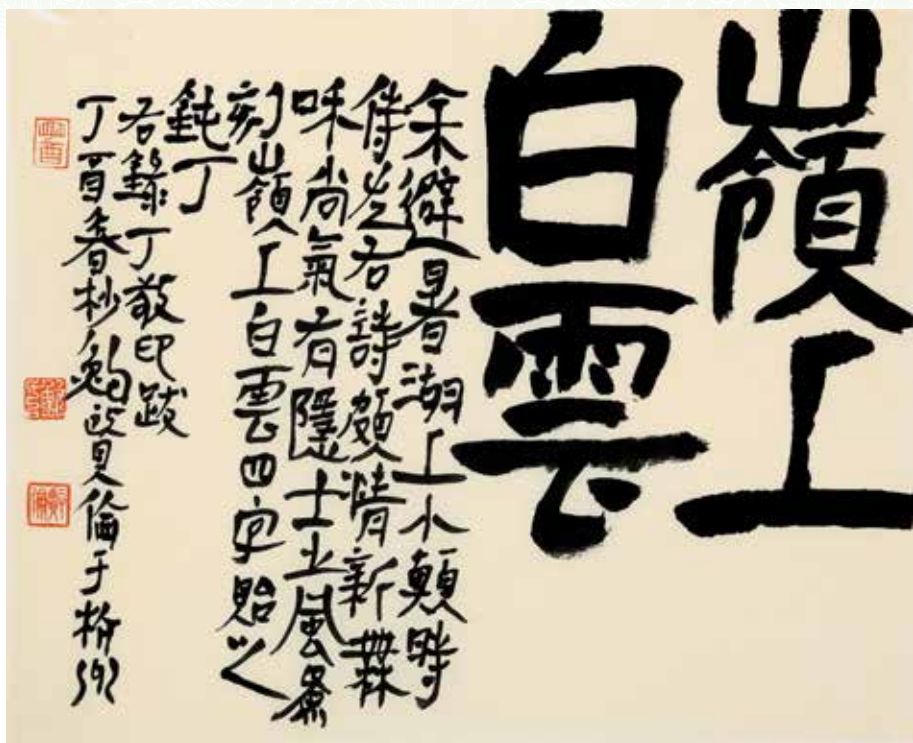 嶺上
白雲
余避暑湖上小顛時
侍右詩頗清新無
味尚氣有隱士之風
刻嶺上白雲四字貽之
鈍丁
右錄丁敬印跋
丁酉春杪倫于